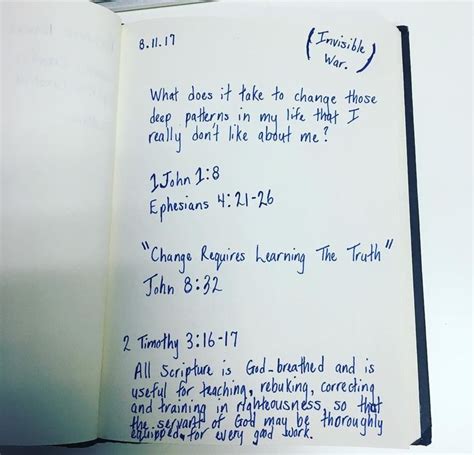 8.11.17
(Invisible
War.)
What does it take to change those
deep patterns in my life that I
really don't like about me?
1 John 1:8
Ephesians 4:21-26
"Change Requires Learning The Truth"
John 8:32
2 Timothy 3:16-17
All Scripture is God-breathed and is
useful for teaching, rebuking, correcting
and training in righteousness, so that
the servant of God may be thoroughly
equipped for every good work.